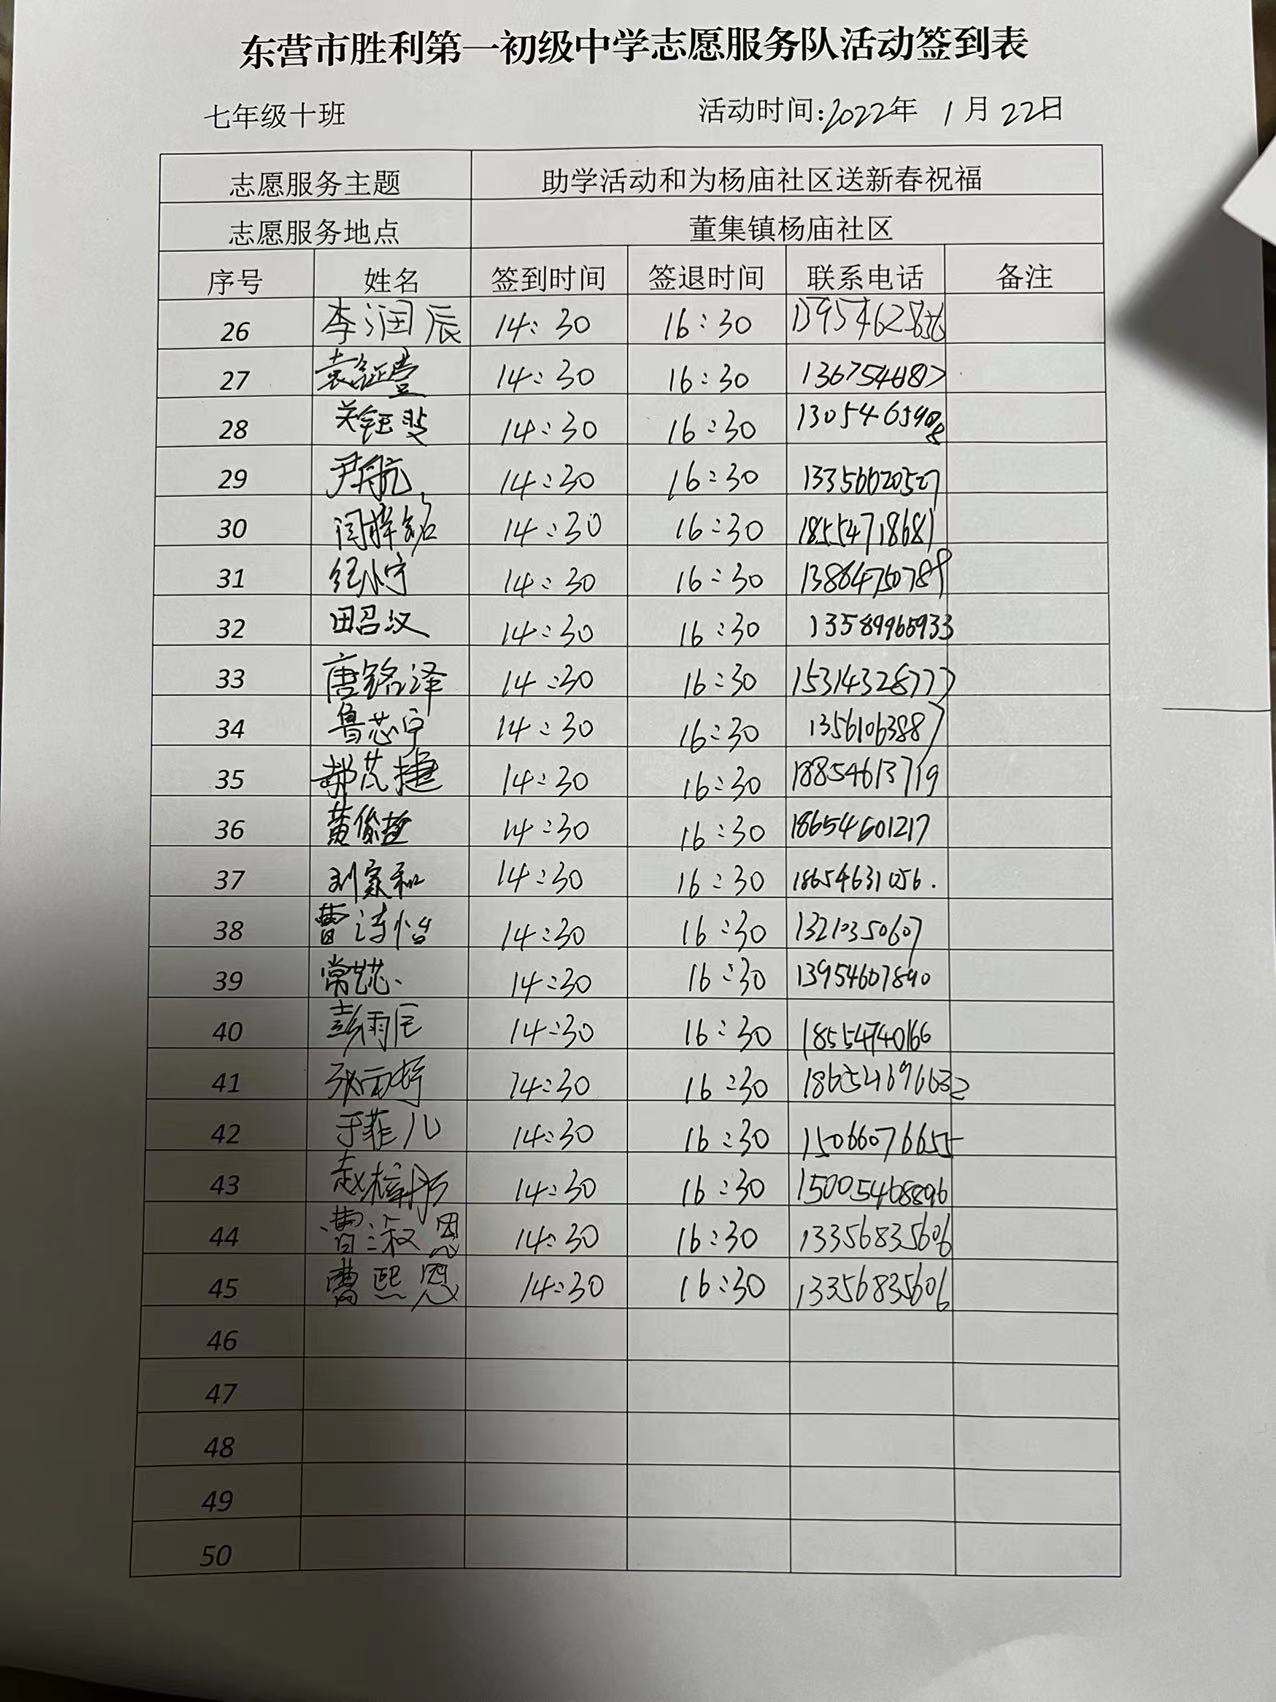 东营市胜利第一初级中学志愿服务队活动签到表
七年级十班 活动时间:2022年 1月22日
志愿服务主题 助学活动和为杨庙社区送新春祝福
志愿服务地点 董集镇杨庙社区
序号 姓名 签到时间 签退时间 联系电话 备注
26 李润辰 14:30 16:30
27 14:30 16:30
28 14:30 16:30
29 尹航 14:30 16:30 13356620527
30 14:30 16:30 18554718681
31 纪小宁 14:30 16:30 13864750789
32 田召汉 14:30 16:30 13589965933
33 唐铭泽 14:30 16:30 15314328777
34 鲁芯宁 14:30 16:30 13561063887
35 郝芃捷 14:30 16:30 18854613719
36 黄俊哲 14:30 16:30 18654601217
37 刘家和 14:30 16:30 18654631056.
38 曹诗怡 14:30 16:30 13210350607
39 14:30 16:30 13954607890
40 彭雨辰 14:30 16:30 18554740166
41 14:30 16:30
42 于菲儿 14:30 16:30 15066076655
43 赵梓彤 14:30 16:30 15005468896
44 曹淑恩 14:30 16:30 13356835606
45 曹熙恩 14:30 16:30 13356835606
46
47
48
49
50